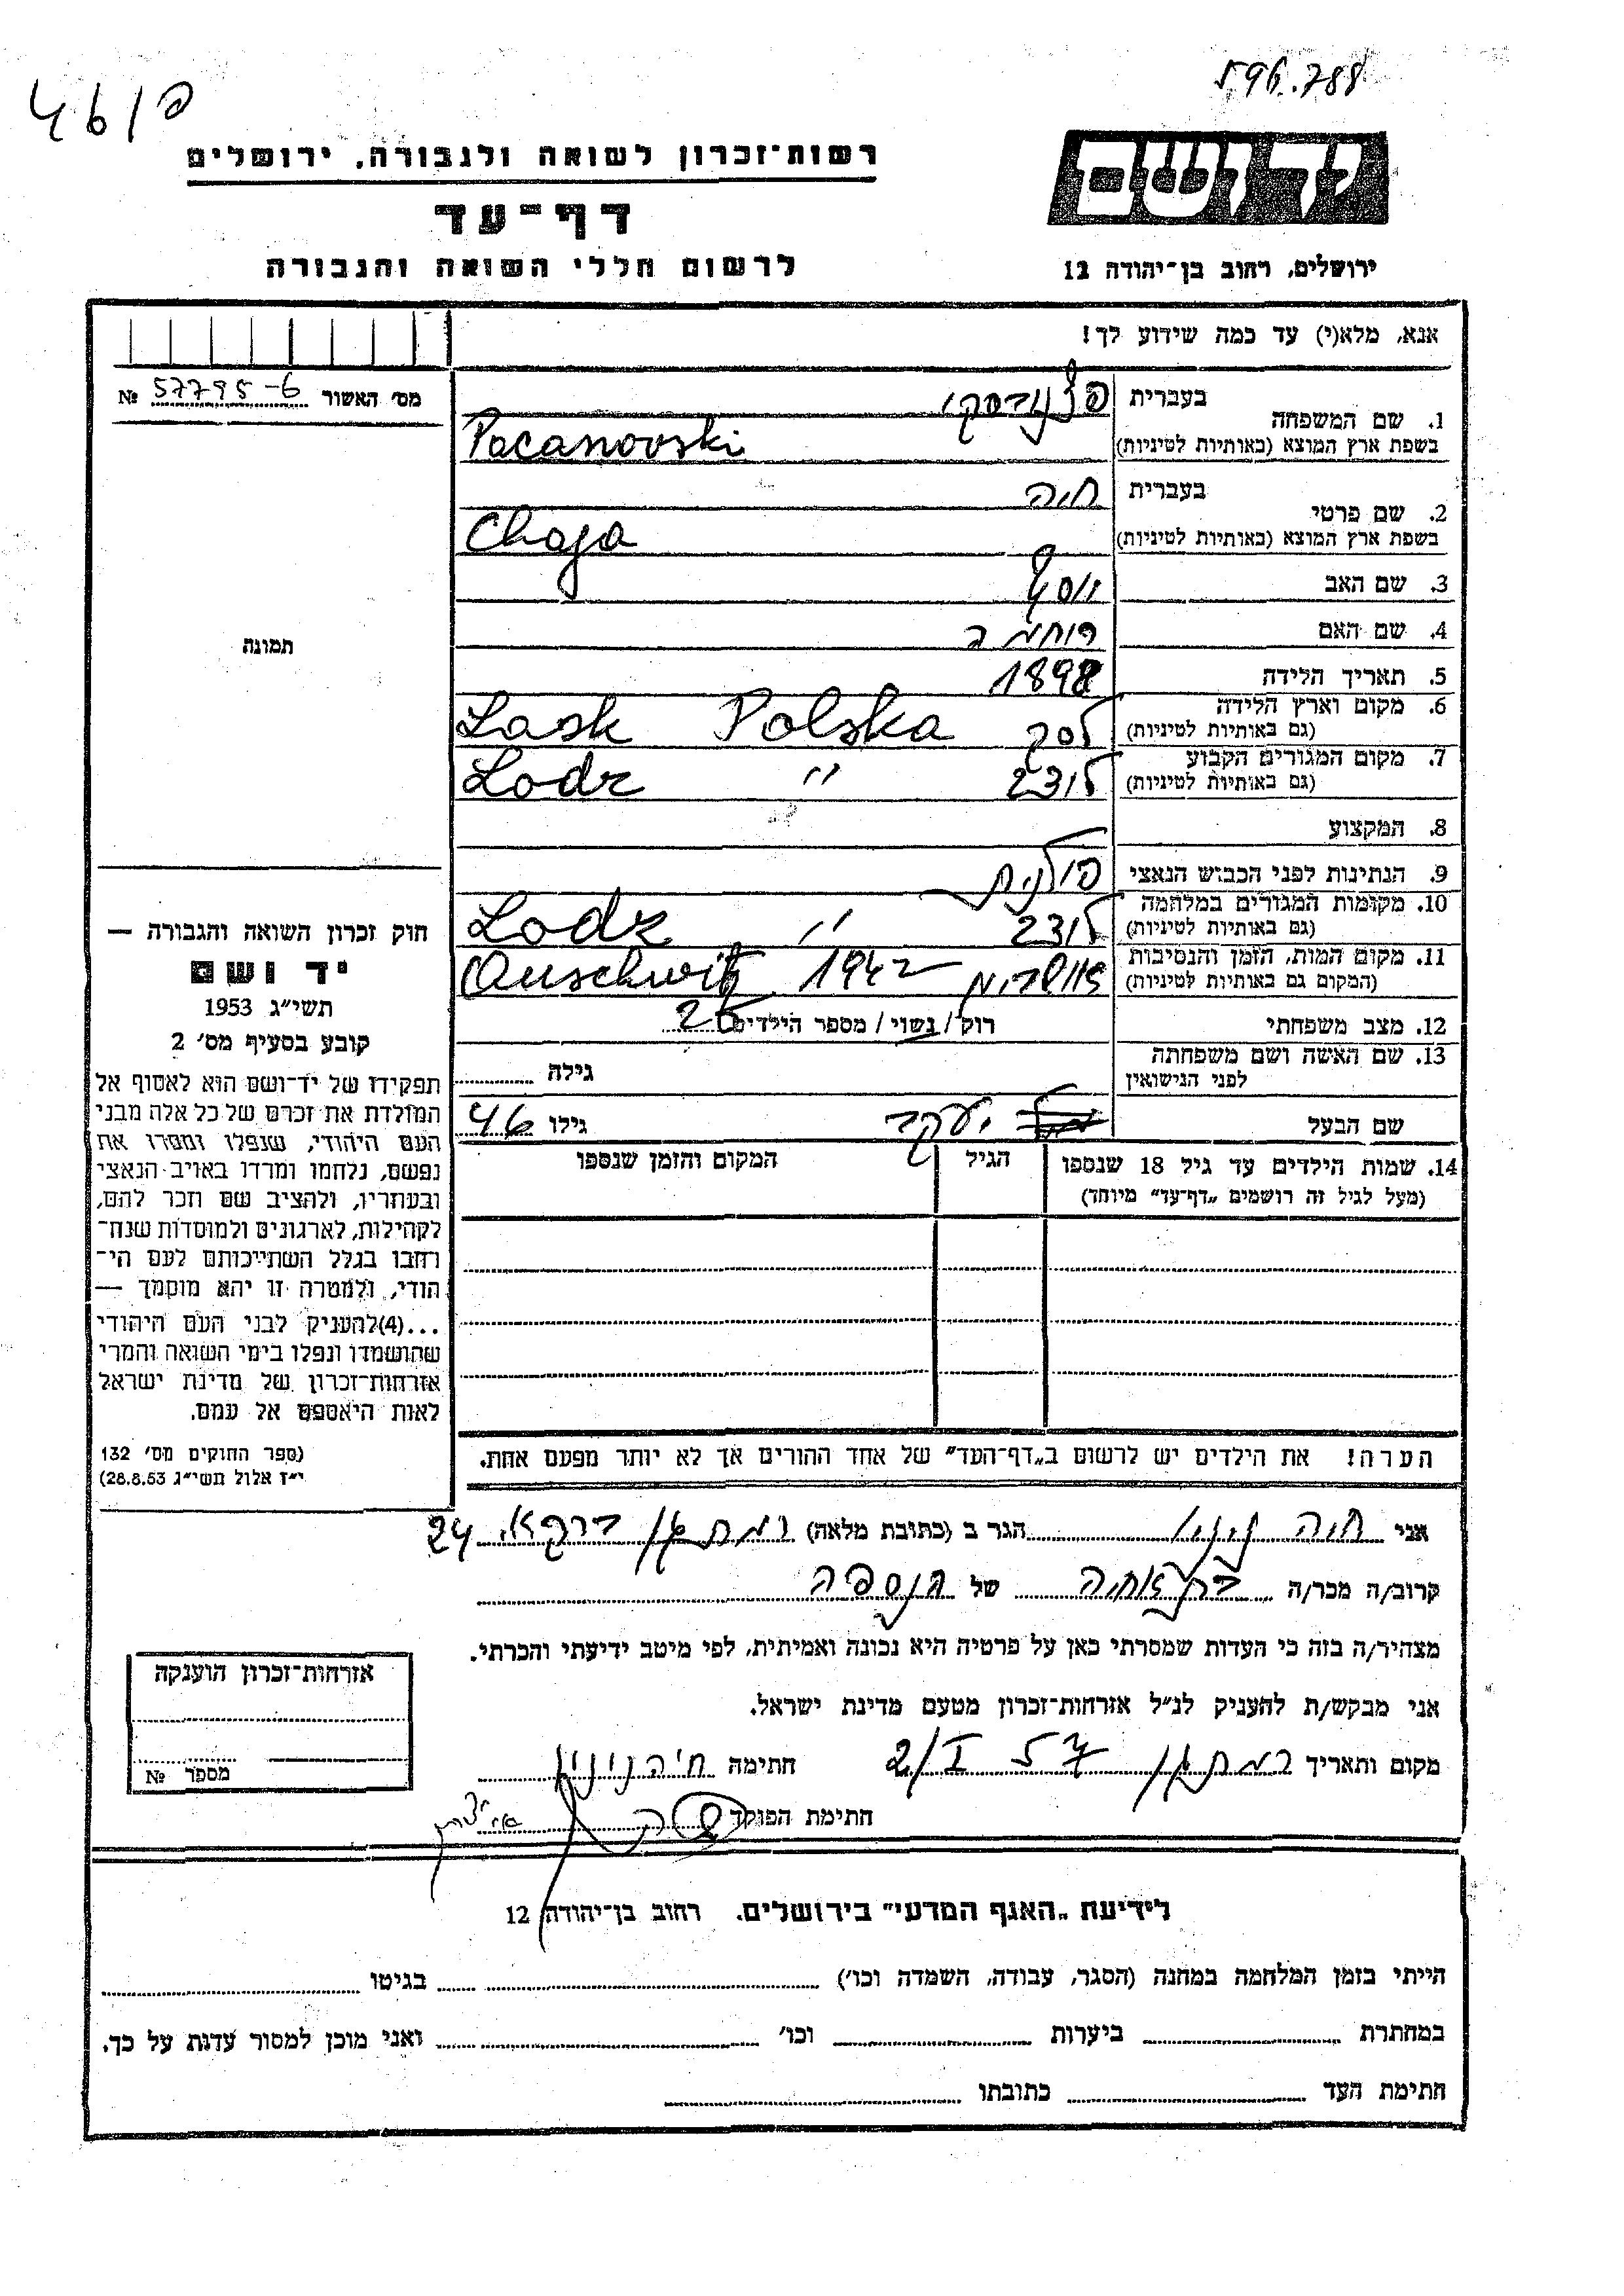 596.788
פ/946
יד ושם
ירושלים, רחוב בן־יהודה 12
רשות־זכרון לשואה ולגבורה, ירושלים
דף־עד
לרשום חללי השואה והגבורה
אנא, מלא(י) עד כמה שידוע לך!
מס׳ האשור 57795-6 №
תמונה
1. שם המשפחה
בעברית פצנובסקי
בשפת ארץ המוצא (באותיות לטיניות) Pacanovski
2. שם פרטי
בעברית חיה
בשפת ארץ המוצא (באותיות לטיניות) Chaja
3. שם האב יוסף
4. שם האם רוחמה
5. תאריך הלידה 1898
6. מקום וארץ הלידה לסק Lask Polska
(גם באותיות לטיניות)
7. מקום המגורים הקבוע לודז Lodz "
(גם באותיות לטיניות)
8. המקצוע
9. הנתינות לפני הכבוש הנאצי פולנית
10. מקומות המגורים במלחמה לודז Lodz "
(גם באותיות לטיניות)
11. מקום המות, הזמן והנסיבות 1942 Auschwitz
(המקום גם באותיות לטיניות)
12. מצב משפחתי רוק / נשוי / מספר הילדים 2
13. שם האשה ושם משפחתה
לפני הנישואין גילה
שם הבעל יעקב גילו 46
14. שמות הילדים עד גיל 18 שנספו
(מעל לגיל זה רושמים „דף־עד״ מיוחד)
הגיל
המקום והזמן שנספו
הערה! את הילדים יש לרשום ב„דף־העד״ של אחד ההורים אך לא יותר מפעם אחת.
חוק זכרון השואה והגבורה —
יד ושם
תשי״ג 1953
קובע בסעיף מס׳ 2
תפקידו של יד־ושם הוא לאסוף אל
המולדת את זכרם של כל אלה מבני
העם היהודי, שנפלו ומסרו את
נפשם, נלחמו ומרדו באויב הנאצי
ובעוזריו, ולהציב שם וזכר להם,
לקהילות, לארגונים ולמוסדות שנח־
רחבו בגלל השתייכותם לעם הי־
הודי, ולמטרה זו יהא מוסמך —
...(4)להעניק לבני העם היהודי
שהושמדו ונפלו בימי השואה והמרי
אזרחות־זכרון של מדינת ישראל
לאות היאספם אל עמם.
(ספר החוקים מס׳ 132
י״ז אלול תשי״ג 28.8.53)
אני חיה הגר ב (כתובת מלאה) רמת גן 24
קרוב/ה מכר/ה בת אחיה של הנספה
מצהיר/ה בזה כי העדות שמסרתי כאן על פרטיה היא נכונה ואמיתית, לפי מיטב ידיעתי והכרתי.
אני מבקש/ת להעניק לנ״ל אזרחות־זכרון מטעם מדינת ישראל.
מקום ותאריך רמת גן 2/I 57 חתימה
חתימת הפוקד
אזרחות־זכרון הוענקה
מספר №
לידיעת „האגף המדעי״ בירושלים, רחוב בן־יהודה 12
הייתי בזמן המלחמה במחנה (הסגר, עבודה, השמדה וכו׳) בגיטו
במחתרת ביערות וכו׳ ואני מוכן למסור עדות על כך.
חתימת העד כתובתו